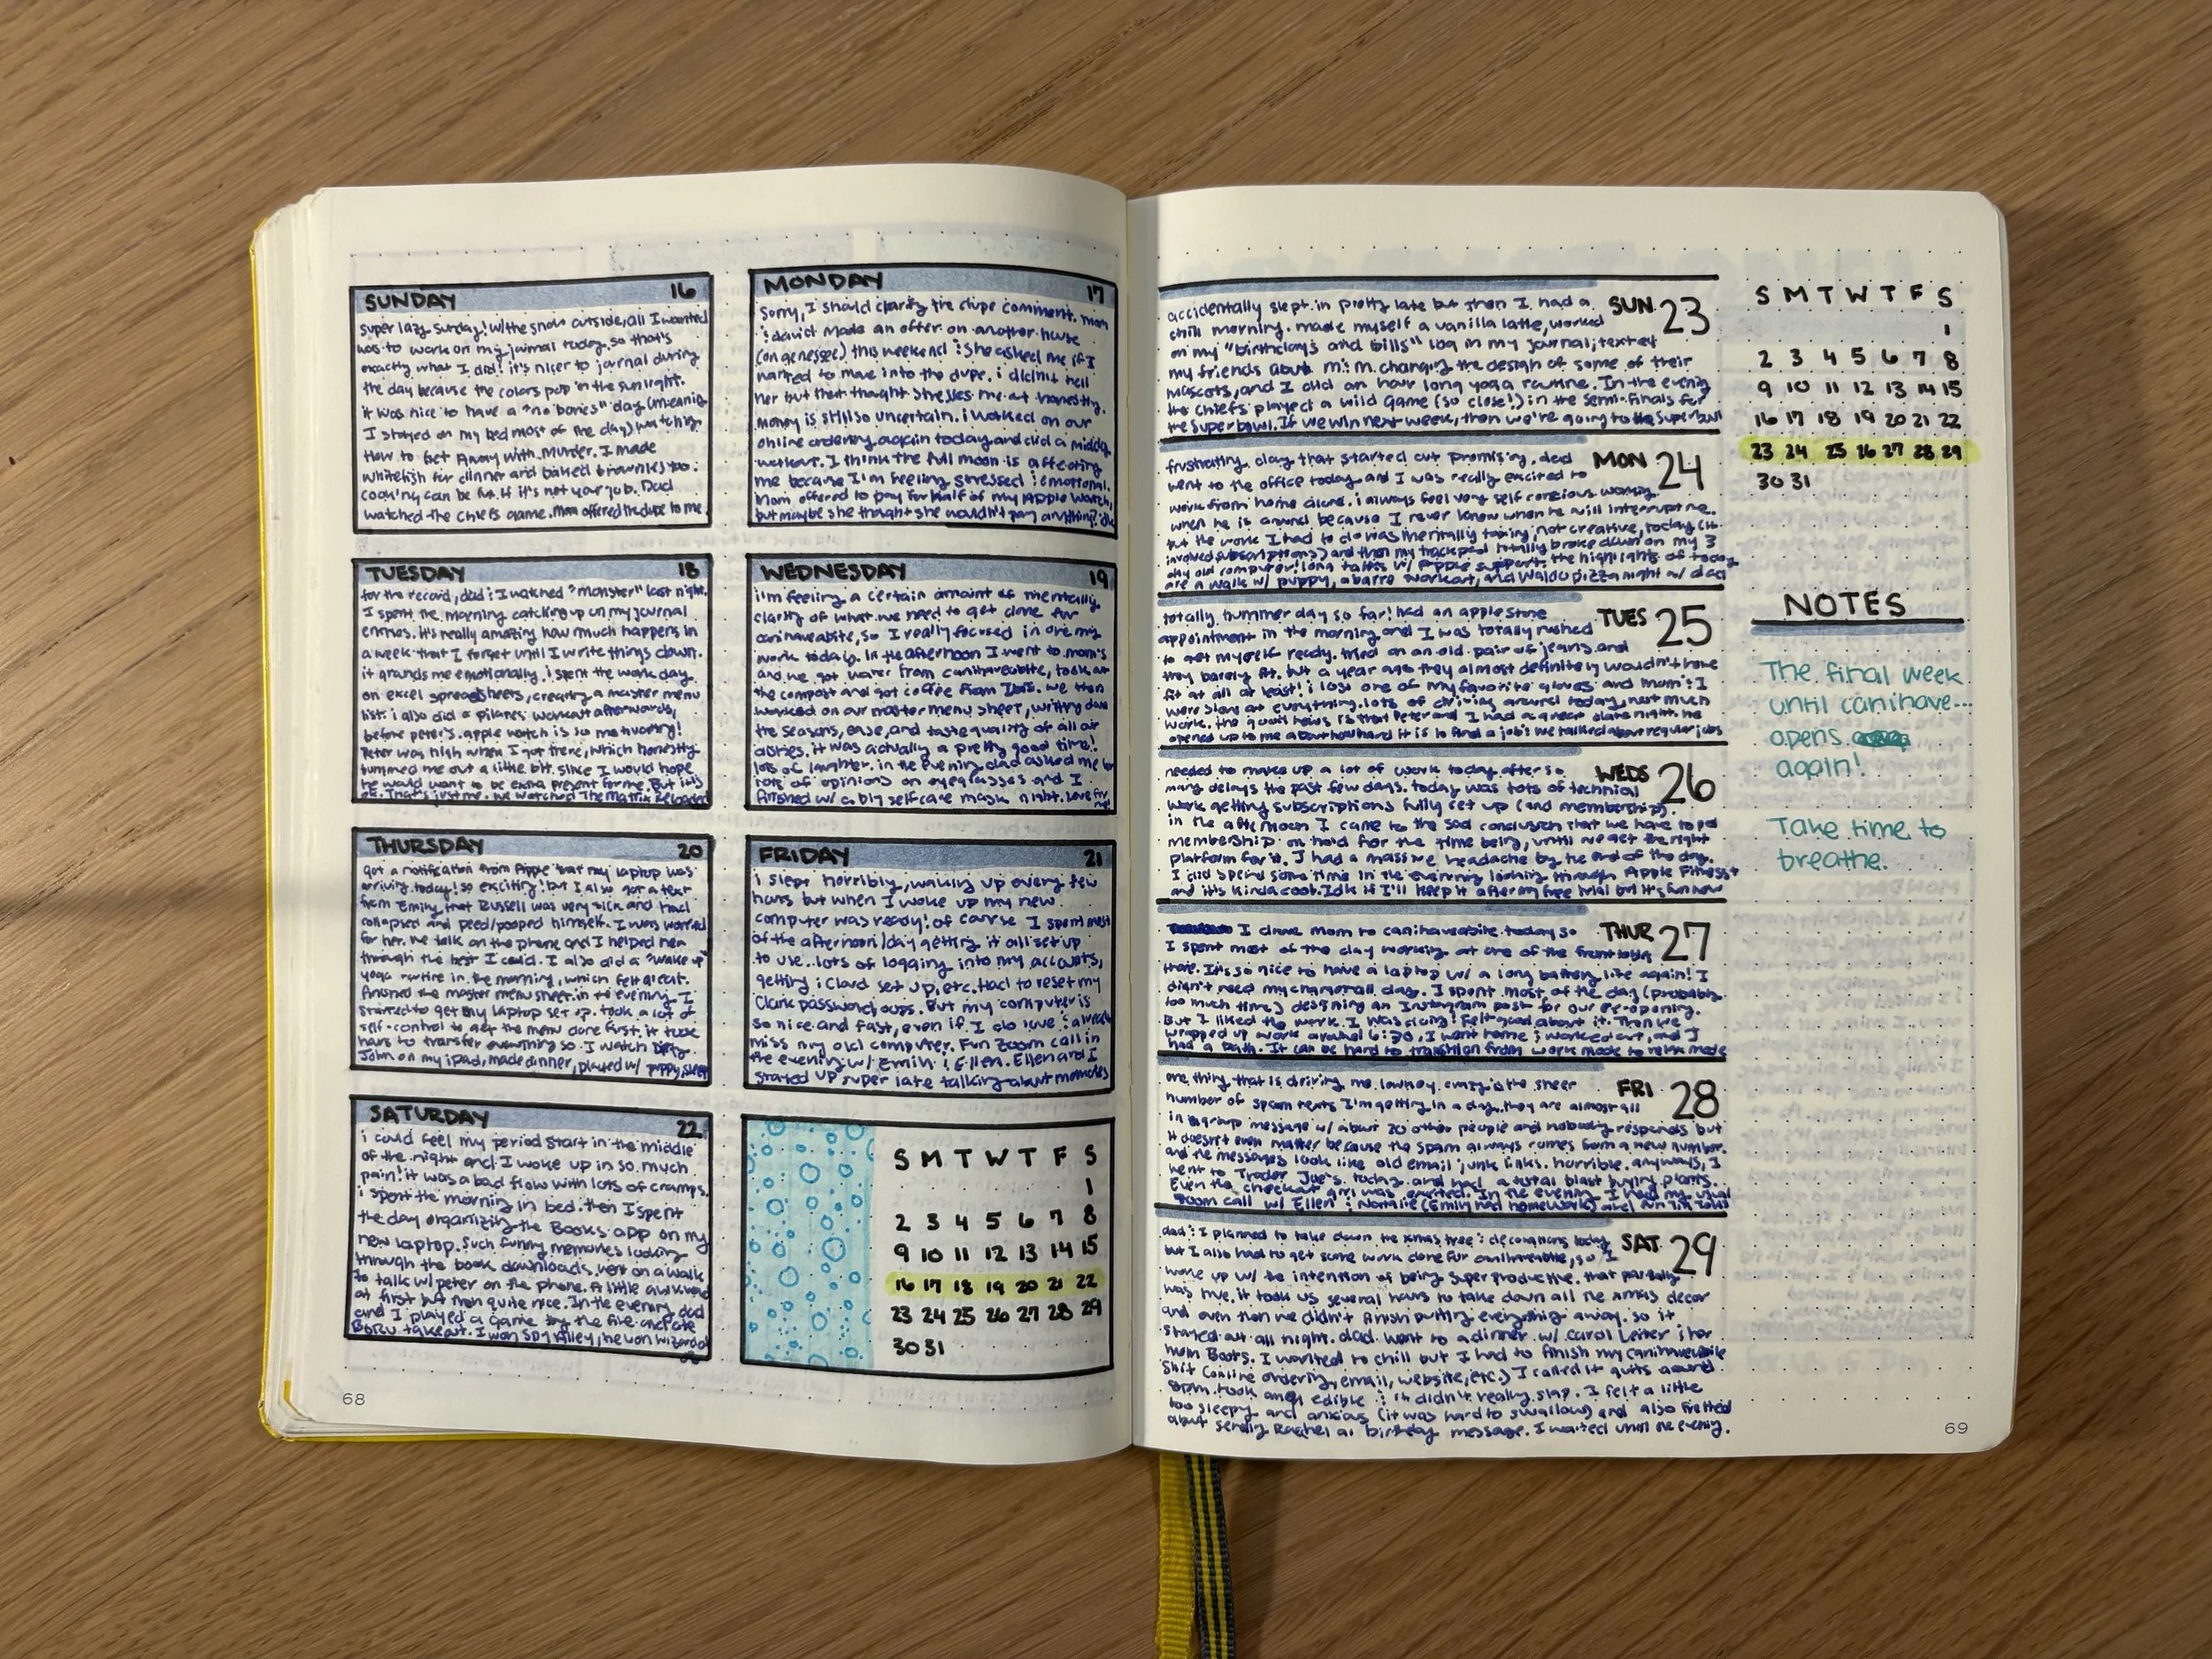 SUNDAY 16
super lazy sunday! w/the snow outside, all I wanted
was to work on my journal today. so that's
exactly what I did! it's nicer to journal during
the day because the colors pop in the sunlight.
it was nice to have a "no bones" day (meaning
I stayed on my bed most of the day) watching
How to Get Away with Murder. I made
whitefish for dinner and baked brownies too.
cooking can be fun if it's not your job. Dad
watched the Chiefs game. Mom offered the dupe to me
MONDAY 17
Sorry, I should clarify the dupe comment. mom
& david made an offer on another house
(on genessee) this weekend & she asked me if I
wanted to move into the dupe. i didn't tell
her but that thought stresses me out honestly.
money is still so uncertain. i worked on our
online ordering again today and did a midday
workout. I think the full moon is affecting
me because I'm feeling stressed & emotional.
Mom offered to pay for half of my Apple Watch,
but maybe she thought she wouldn't pay anything? idk
TUESDAY 18
for the record, dad & I watched "monster" last night.
I spent the morning catching up on my journal
entries. it's really amazing how much happens in
a week that I forget until I write things down.
it grounds me emotionally. i spent the work day
on excel spreadsheets, creating a master menu
list. i also did a pilates workout afterwards,
before peter's. apple watch is so motivating!
Peter was high when I got there, which honestly
bummed me out a little bit. since I would hope
he would want to be extra present for me. But it's
ok. That's just me. we watched The Matrix Reloaded
WEDNESDAY 19
i'm feeling a certain amount of mentally
clarity of what we need to get done for
canihaveabite, so I really focused in on my
work today. In the afternoon I went to mom's
and we got water from canihaveabite, took out
the compost and got coffee from Ibis. we then
worked on our master menu sheet, writing down
the seasons, ease, and taste quality of all our
dishes. it was actually a pretty good time!
lots of laughter. in the evening dad asked me
lots of opinions on eyeglasses and I
finished w/ a big selfcare mask night. love for me!
THURSDAY 20
got a notification from Apple that my laptop was
arriving today! so exciting! but I also got a text
from Emily that Russell was very sick and had
collapsed and peed/pooped himself. I was worried
for her. we talk on the phone and I helped her
through the best I could. I also did a "wake up"
yoga routine in the morning, which felt great.
finished the master menu sheet. in the evening I
started to get my laptop set up. took a lot of
self-control to get the menu done first. it took
hours to transfer everything so I watch Dirty
John on my ipad, made dinner, played w/ puppy, sleep
FRIDAY 21
i slept horribly, waking up every few
hours but when I woke up my new
computer was ready! of course I spent most
of the afternoon/day getting it all set up
to use.. lots of logging into my accounts,
getting iCloud set up, etc. Had to reset my
Clark password, oops. But my computer is
so nice and fast, even if I do love & already
miss my old computer. Fun Zoom call in
the evening w/ Emily & Ellen. Ellen and I
stayed up super late talking about memories
SATURDAY 22
i could feel my period start in the middle
of the night and I woke up in so much
pain! it was a bad flow with lots of cramps.
i spent the morning in bed. then I spent
the day organizing the Books app on my
new laptop. Such funny memories looking
through the book downloads. went on a walk
to talk w/ peter on the phone. A little awkward
at first but then quite nice. In the evening dad
and I played a game by the fire and ate
BORU takeout. I won Spy Alley, he won wizard
S M T W T F S
1
2 3 4 5 6 7 8
9 10 11 12 13 14 15
16 17 18 19 20 21 22
23 24 25 26 27 28 29
30 31
68
SUN 23
accidentally slept in pretty late but then I had a
chill morning. made myself a vanilla latte, worked
on my "birthdays and bills" log in my journal, texted
my friends about m&m changing the design of some of their
mascots, and I did an hour long yoga routine. In the evening
the Chiefs played a wild game (so close!) in the semi-finals for
the Superbowl. If we win next week, then we're going to the Superbowl
MON 24
frustrating day that started out promising. dad
went to the office today and I was really excited to
work from home alone. i always feel very self concious working
when he is around because I never know when he will interrupt me.
but the work I had to do was mentally taxing, not creative, today (it
involved subscriptions) and then my trackpad totally broke down on my 3
day old computer! long talks w/ Apple support. the highlights of today
are a walk w/ puppy, a barre workout, and Waldo pizza night w/ dad
TUES 25
totally bummer day so far! had an apple store
appointment in the morning and I was totally rushed
to get myself ready. tried on an old pair of jeans and
they barely fit, but a year ago they almost definitely wouldn't have
fit at all at least! i lost one of my favorite gloves and mom & I
were slow at everything. lots of driving around today, not much
work. the good news is that Peter and I had a great date night. he
opened up to me about how hard it is to find a job & we talked about regular jobs
WEDS 26
needed to make up a lot of work today after so
many delays the past few days. today was lots of technical
work getting subscriptions fully set up (and membership).
in the afternoon I came to the sad conclusion that we have to put
membership on hold for the time being, until we get the right
platform for it. I had a massive headache by the end of the day.
I did spend some time in the evening looking through Apple Fitness+
and it's kinda cool. Idk if I'll keep it after my free trial but it's fun now
THUR 27
I drove mom to canihaveabite today so
I spent most of the day working at one of the front
there. It's so nice to have a laptop w/ a long battery life again! I
didn't need my charger all day. I spent most of the day (probably
too much time) designing an Instagram post for our re-opening.
But I liked the work I was doing! Felt good about it. Then we
wrapped up work around 6:30, I went home & worked out, and I
had a bath. It can be hard to transition from work mode to relax mode
FRI 28
one thing that is driving me lowkey crazy is the sheer
number of spam texts I'm getting in a day. they are almost all
in a group message w/ about 20 other people and nobody responds but
it doesn't even matter because the spam always comes from a new number.
and the messages look like old email junk links. horrible. anyways, I
went to Trader Joe's today and had a total blast buying plants.
Even the checkout girl was excited. In the evening I had my usual
zoom call w/ Ellen & Natalie (Emily had homework) and
SAT 29
dad & I planned to take down the xmas tree & decorations today
but I also had to get some work done for canihaveabite, so I
woke up w/ the intention of being super productive. that partially
was true. it took us several hours to take down all the xmas decor
and even then we didn't finish putting everything away. so it
stayed out all night. dad went to a dinner w/ Carol Leiter & her
mom Boots. I wanted to chill but I had to finish my canihaveabite
shit (online ordering, email, website, etc.) I called it quits around
8pm. took an edible & it didn't really slap. I felt a little
too sleepy and anxious (it was hard to swallow) and also fretted
about sending Rachel a birthday message. I waited until the evening.
S M T W T F S
1
2 3 4 5 6 7 8
9 10 11 12 13 14 15
16 17 18 19 20 21 22
23 24 25 26 27 28 29
30 31
NOTES
The final week
until canihave...
opens
again!
Take time to
breathe.
69